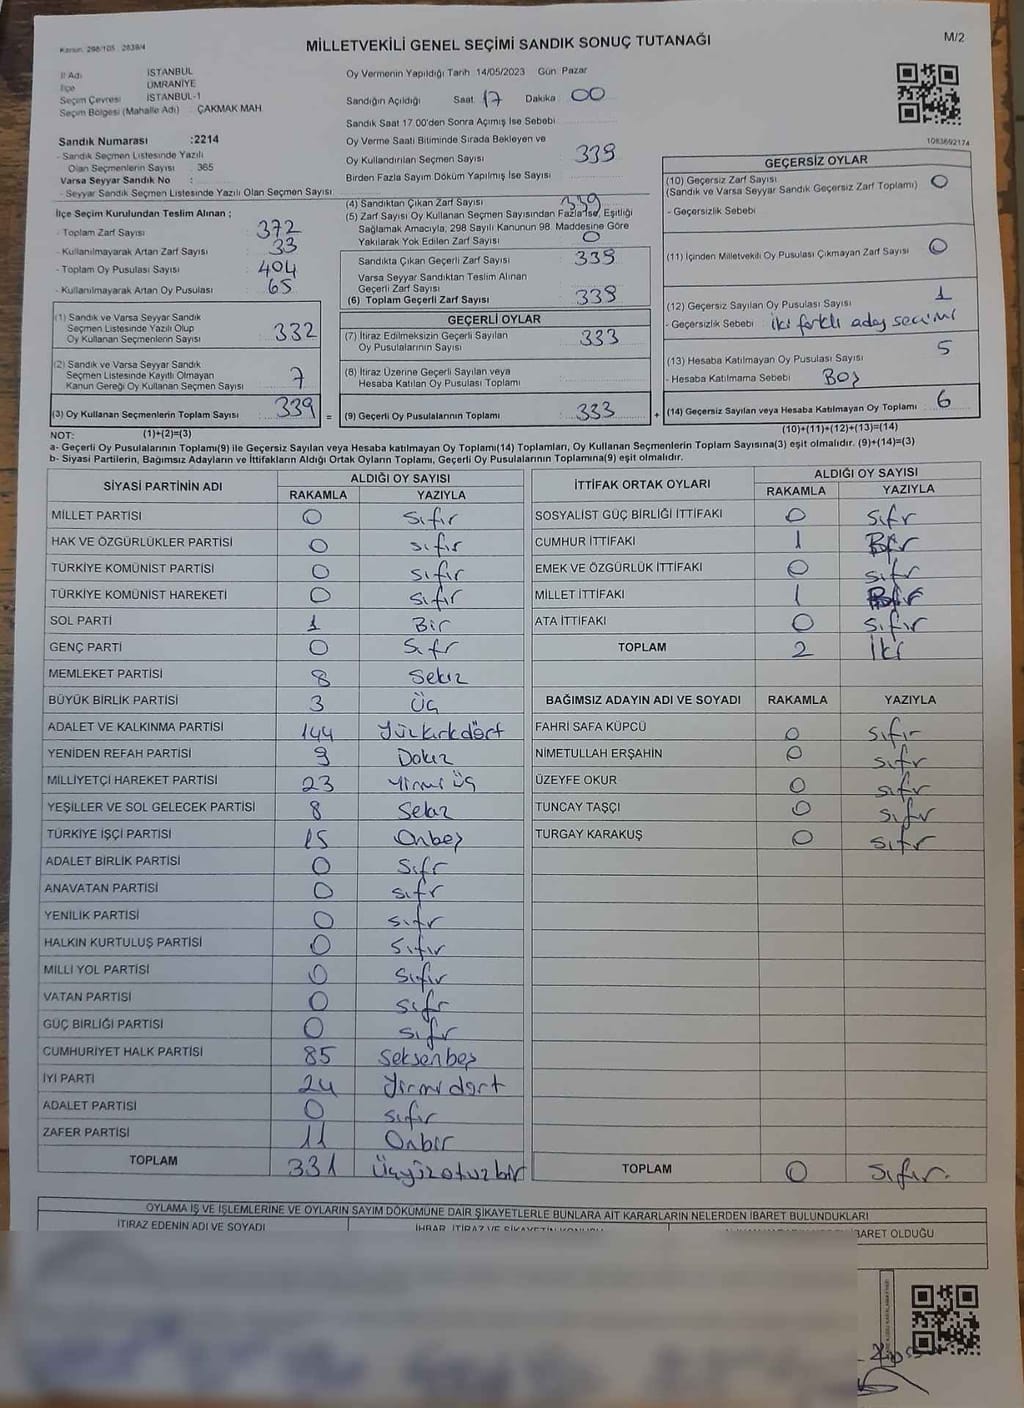 Kanun: 298/105 2839/4
MİLLETVEKİLİ GENEL SEÇİMİ SANDIK SONUÇ TUTANAĞI
M/2
İl Adı İSTANBUL
İlçe ÜMRANİYE
Seçim Çevresi İSTANBUL-1
Seçim Bölgesi (Mahalle Adı) ÇAKMAK MAH.
Oy Vermenin Yapıldığı Tarih 14/05/2023 Gün Pazar
Sandığın Açıldığı Saat 17 Dakika 00
Sandık Saat 17.00'den Sonra Açılmış İse Sebebi
Sandık Numarası :2214
- Sandık Seçmen Listesinde Yazılı
Olan Seçmenlerin Sayısı : 365
Varsa Seyyar Sandık No :
- Seyyar Sandık Seçmen Listesinde Yazılı Olan Seçmen Sayısı
Oy Verme Saati Bitiminde Sırada Bekleyen ve
Oy Kullandırılan Seçmen Sayısı 339
Birden Fazla Sayım Döküm Yapılmış İse Sayısı
1083692174
İlçe Seçim Kurulundan Teslim Alınan ;
- Toplam Zarf Sayısı 372
- Kullanılmayarak Artan Zarf Sayısı 33
- Toplam Oy Pusulası Sayısı 404
- Kullanılmayarak Artan Oy Pusulası 65
(1) Sandık ve Varsa Seyyar Sandık
Seçmen Listesinde Yazılı Olup
Oy Kullanan Seçmenlerin Sayısı 332
(2) Sandık ve Varsa Seyyar Sandık
Seçmen Listesinde Kayıtlı Olmayan
Kanun Gereği Oy Kullanan Seçmen Sayısı 7
(3) Oy Kullanan Seçmenlerin Toplam Sayısı 339 =
(4) Sandıktan Çıkan Zarf Sayısı 339
(5) Zarf Sayısı Oy Kullanan Seçmen Sayısından Fazla İse, Eşitliği
Sağlamak Amacıyla, 298 Sayılı Kanunun 98. Maddesine Göre
Yakılarak Yok Edilen Zarf Sayısı 0
Sandıkta Çıkan Geçerli Zarf Sayısı 339
Varsa Seyyar Sandıktan Teslim Alınan
Geçerli Zarf Sayısı
(6) Toplam Geçerli Zarf Sayısı 339
GEÇERLİ OYLAR
(7) İtiraz Edilmeksizin Geçerli Sayılan
Oy Pusulalarının Sayısı 333
(8) İtiraz Üzerine Geçerli Sayılan veya
Hesaba Katılan Oy Pusulası Toplamı
(9) Geçerli Oy Pusulalarının Toplamı 333 +
GEÇERSİZ OYLAR
(10) Geçersiz Zarf Sayısı 0
(Sandık ve Varsa Seyyar Sandık Geçersiz Zarf Toplamı)
- Geçersizlik Sebebi
(11) İçinden Milletvekili Oy Pusulası Çıkmayan Zarf Sayısı 0
(12) Geçersiz Sayılan Oy Pusulası Sayısı 1
- Geçersizlik Sebebi : iki farklı aday seçimi
(13) Hesaba Katılmayan Oy Pusulası Sayısı 5
- Hesaba Katılmama Sebebi : Boş
(14) Geçersiz Sayılan veya Hesaba Katılmayan Oy Toplamı 6
NOT: (1)+(2)=(3)
(10)+(11)+(12)+(13)=(14)
a- Geçerli Oy Pusulalarının Toplamı(9) ile Geçersiz Sayılan veya Hesaba katılmayan Oy Toplamı(14) Toplamları, Oy Kullanan Seçmenlerin Toplam Sayısına(3) eşit olmalıdır. (9)+(14)=(3)
b- Siyasi Partilerin, Bağımsız Adayların ve İttifakların Aldığı Ortak Oyların Toplamı, Geçerli Oy Pusulalarının Toplamına(9) eşit olmalıdır.
SİYASİ PARTİNİN ADI ALDIĞI OY SAYISI
RAKAMLA YAZIYLA
MİLLET PARTİSİ 0 Sıfır
HAK VE ÖZGÜRLÜKLER PARTİSİ 0 sıfır
TÜRKİYE KOMÜNİST PARTİSİ 0 sıfır
TÜRKİYE KOMÜNİST HAREKETİ 0 sıfır
SOL PARTİ 1 Bir
GENÇ PARTİ 0 Sıfr
MEMLEKET PARTİSİ 8 Sekiz
BÜYÜK BİRLİK PARTİSİ 3 Üç
ADALET VE KALKINMA PARTİSİ 144 Yüzkırkdört
YENİDEN REFAH PARTİSİ 9 Dokız
MİLLİYETÇİ HAREKET PARTİSİ 23 Yirmi üç
YEŞİLLER VE SOL GELECEK PARTİSİ 8 Sekiz
TÜRKİYE İŞÇİ PARTİSİ 15 Onbeş
ADALET BİRLİK PARTİSİ 0 Sıfr
ANAVATAN PARTİSİ 0 sıfr
YENİLİK PARTİSİ 0 sıfr
HALKIN KURTULUŞ PARTİSİ 0 Sıfır
MİLLİ YOL PARTİSİ 0 Sıfır
VATAN PARTİSİ 0 sıfr
GÜÇ BİRLİĞİ PARTİSİ 0 sıfr
CUMHURİYET HALK PARTİSİ 85 Seksenbeş
İYİ PARTİ 24 Yirmi dört
ADALET PARTİSİ 0 sıfır
ZAFER PARTİSİ 11 Onbir
TOPLAM 331 Üçyüzotuzbir
İTTİFAK ORTAK OYLARI ALDIĞI OY SAYISI
RAKAMLA YAZIYLA
SOSYALİST GÜÇ BİRLİĞİ İTTİFAKI 0 Sıfr
CUMHUR İTTİFAKI 1 Bir
EMEK VE ÖZGÜRLÜK İTTİFAKI 0 sıfr
MİLLET İTTİFAKI 1 Bir
ATA İTTİFAKI 0 sıfır
TOPLAM 2 İki
BAĞIMSIZ ADAYIN ADI VE SOYADI RAKAMLA YAZIYLA
FAHRİ SAFA KÜPCÜ 0 sıfır
NİMETULLAH ERŞAHİN 0 sıfr
ÜZEYFE OKUR 0 sıfr
TUNCAY TAŞÇI 0 sıfr
TURGAY KARAKUŞ 0 sıfr
TOPLAM 0 Sıfır.
OYLAMA İŞ VE İŞLEMLERİNE VE OYLARIN SAYIM DÖKÜMÜNE DAİR ŞİKAYETLERLE BUNLARA AİT KARARLARIN NELERDEN İBARET BULUNDUKLARI
İTİRAZ EDENİN ADI VE SOYADI İHBAR, İTİRAZ VE ŞİKAYETİN KONUSU
İBARET OLDUĞU